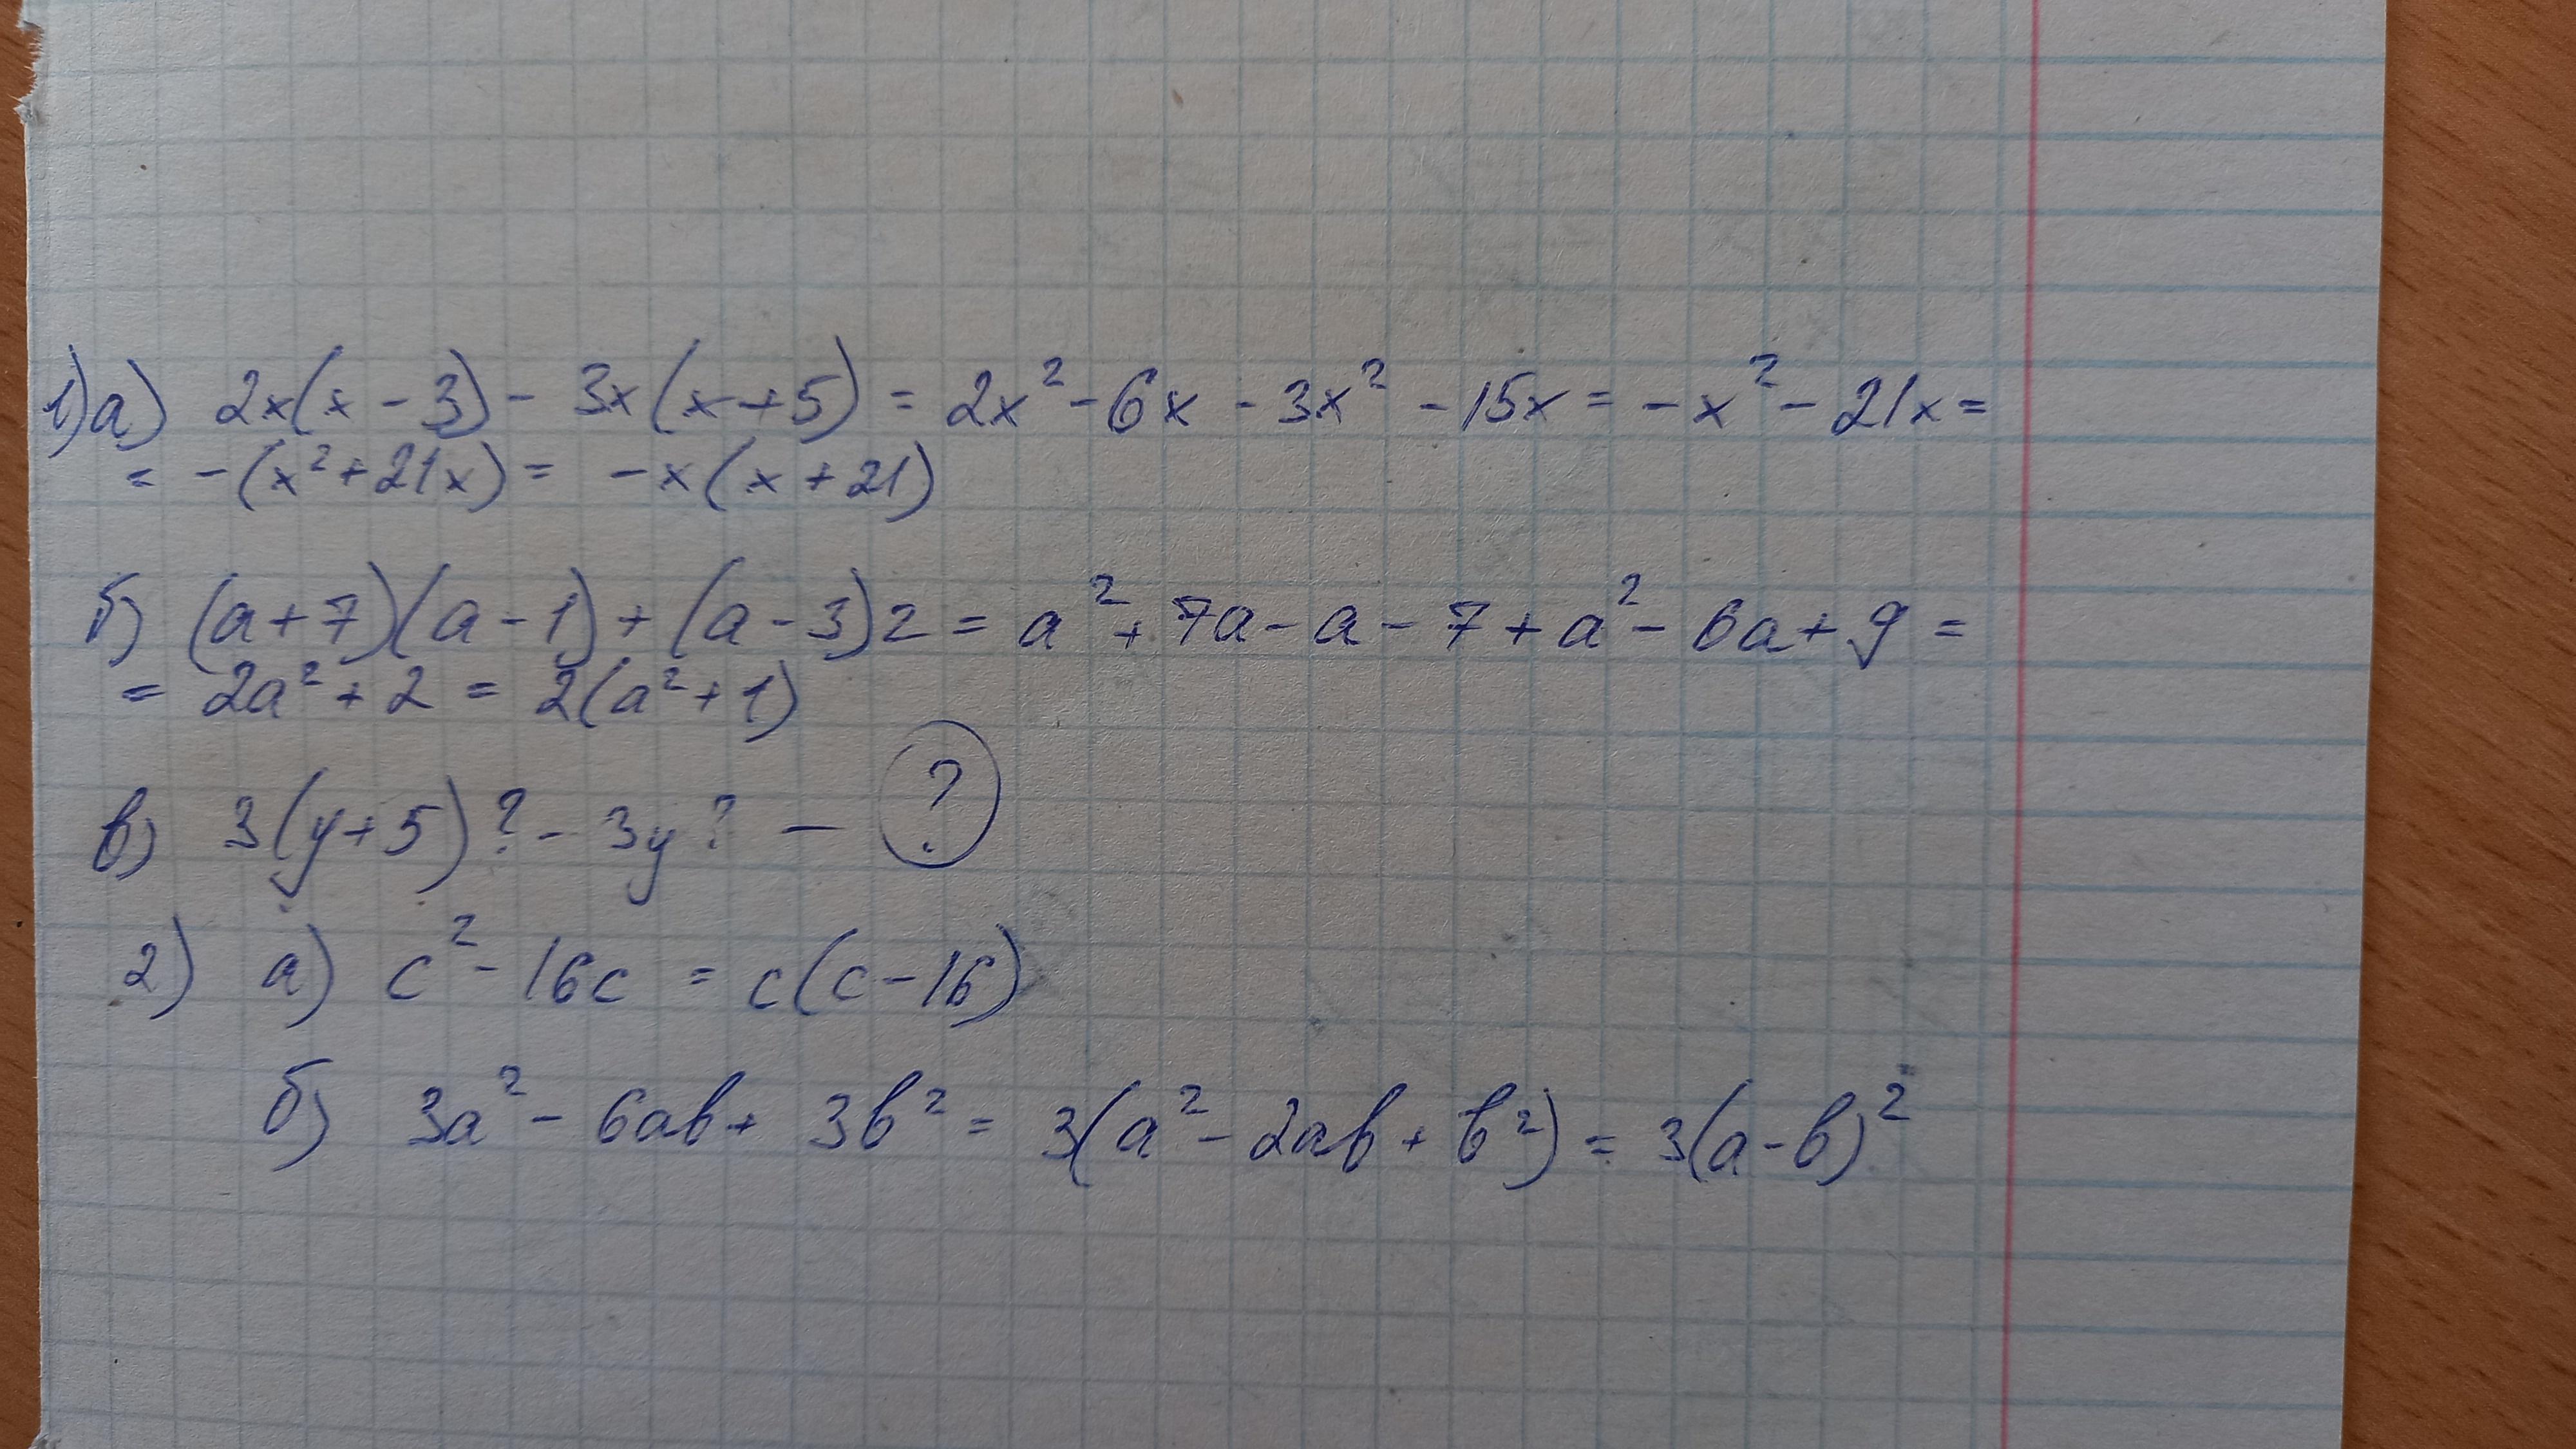 1) а) 2x(x - 3) - 3x(x + 5) = 2x² - 6x - 3x² - 15x = -x² - 21x =
= -(x² + 21x) = -x(x + 21)
б) (a + 7)(a - 1) + (a - 3)2 = a² + 7a - a - 7 + a² - 6a + 9 =
= 2a² + 2 = 2(a² + 1)
в) 3(y + 5)? - 3y? - ?
2) а) c² - 16c = c(c - 16)
б) 3a² - 6ab + 3b² = 3(a² - 2ab + b²) = 3(a - b)²